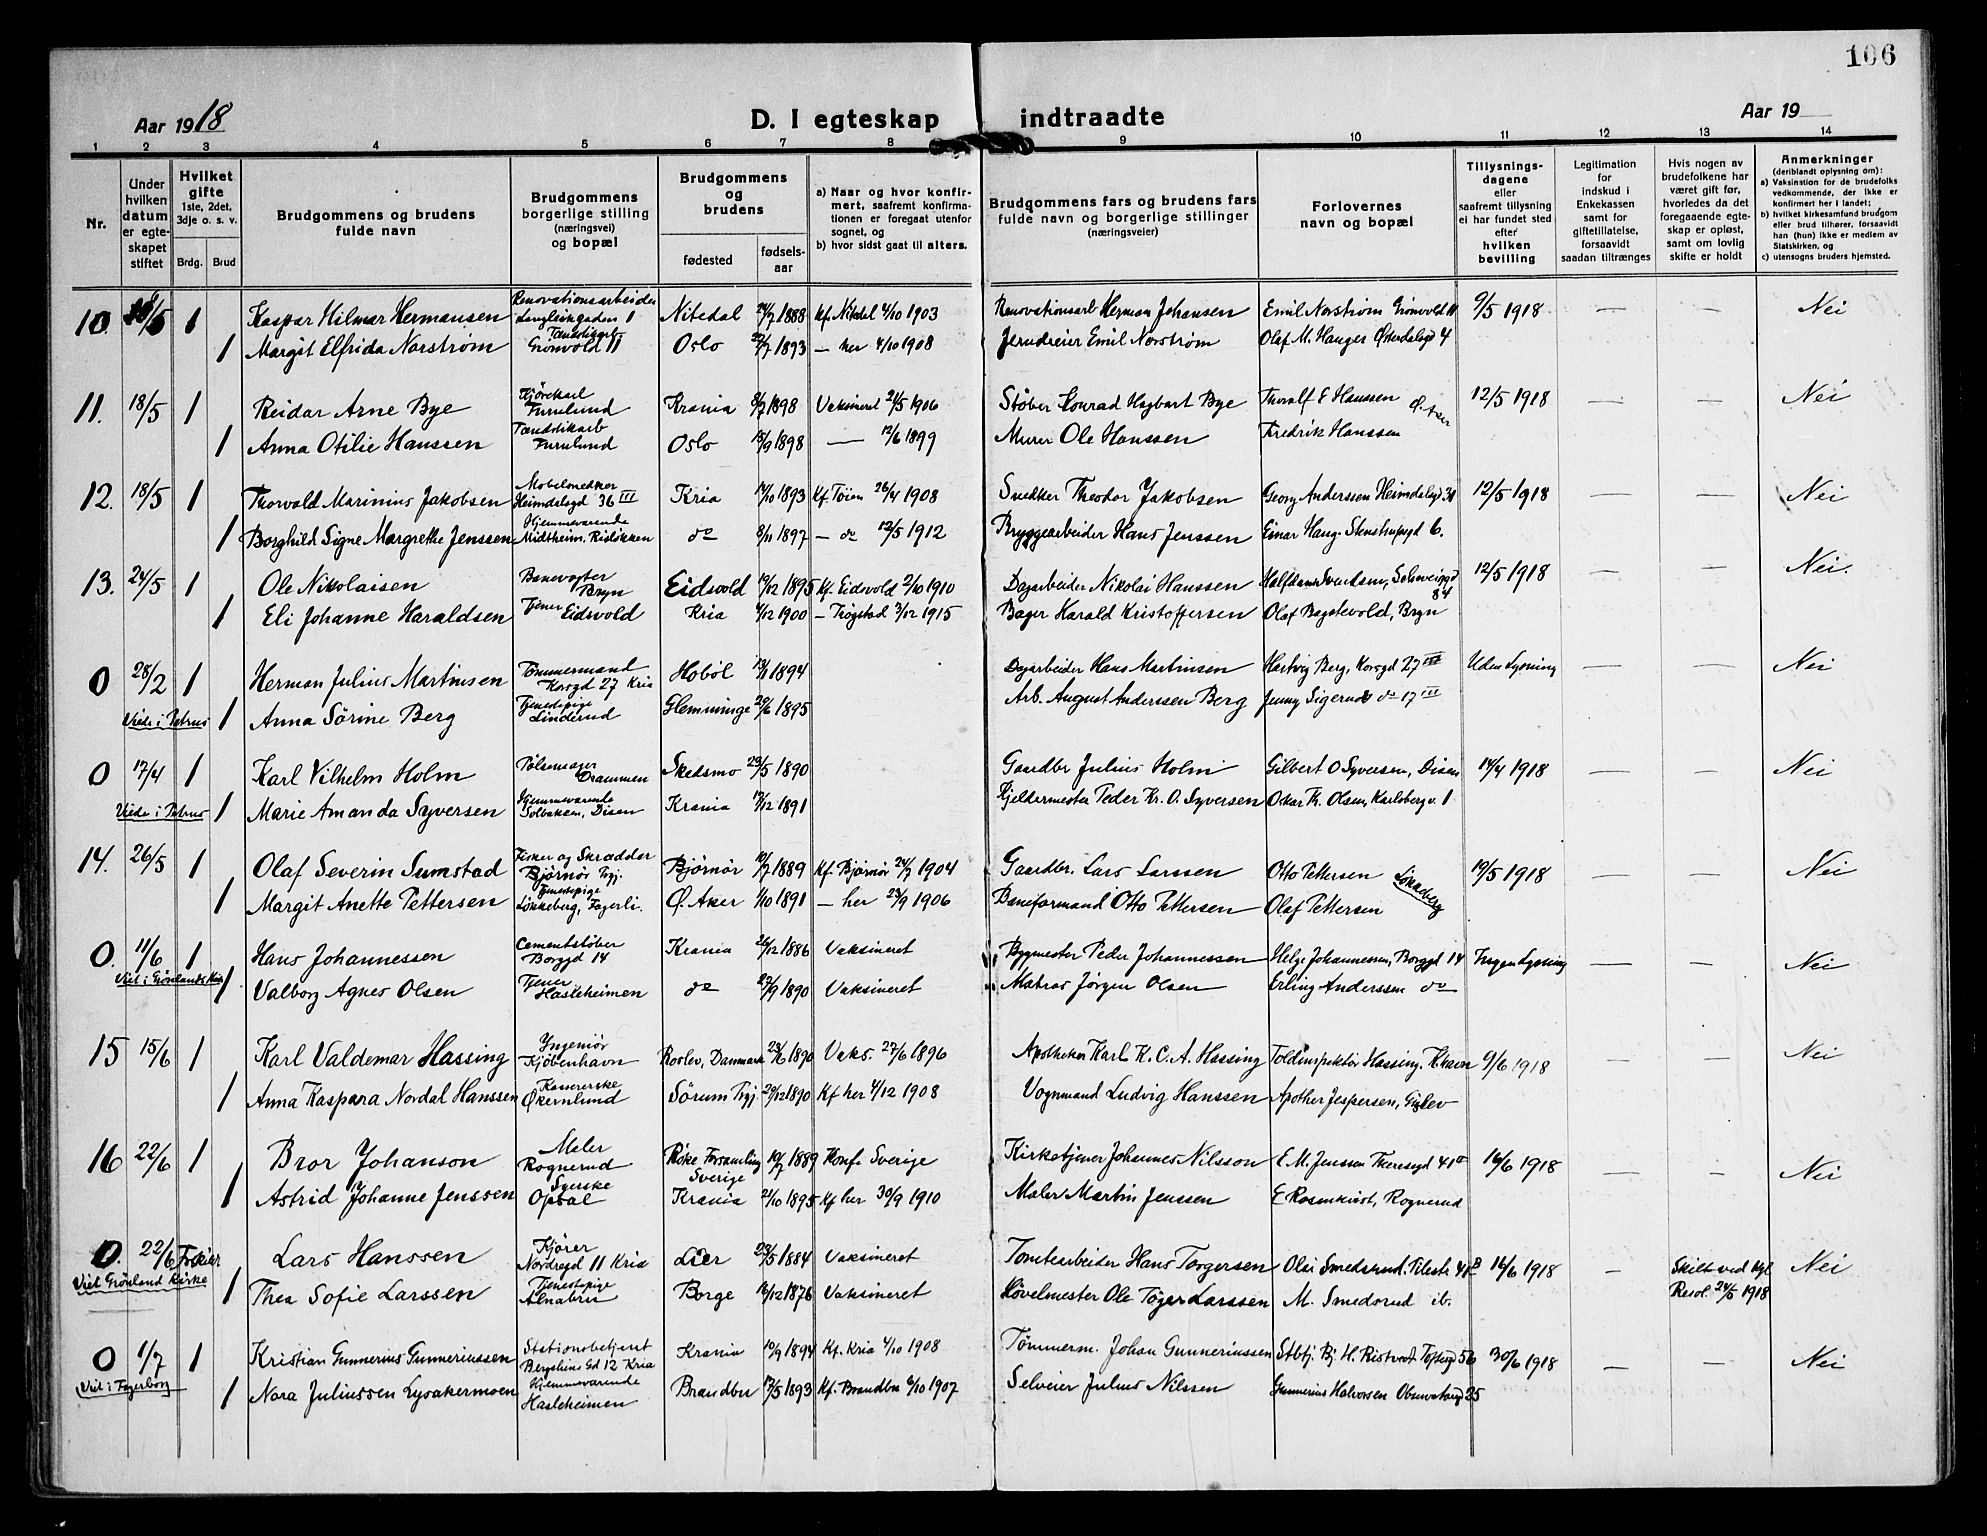 106
Aar 1918
D. I egteskap indtraadte
Aar 19
1 2 3 4 5 6 7 8 9 10 11 12 13 14
Nr.
Under hvilken datum er egteskapet stiftet
Hvilket gifte 1ste, 2det, 3dje o. s. v.
Brdg. Brud
Brudgommens og brudens fulde navn
Brudgommens borgerlige stilling (næringsvei) og bopæl
Brudgommens og brudens
fødested
fødselsaar
a) Naar og hvor konfirmert, saafremt konfirmationen er foregaat utenfor sognet, og
b) hvor sidst gaat til alters.
Brudgommens fars og brudens fars fulde navn og borgerlige stillinger (næringsveier)
Forlovernes navn og bopæl
Tillysningsdagene eller saafremt tillysning ei har fundet sted efter hvilken bevilling
Legitimation for indskud i Enkekassen samt for giftetillatelse, forsaavidt saadan tiltrænges
Hvis nogen av brudefolkene har været gift før, hvorledes da det foregaaende egteskap er opløst, samt om lovlig skifte er holdt
Anmerkninger (deriblandt oplysning om):
a) Vaksinstion for de brudefolks vedkommende, der ikke er konfirmert her i landet;
b) hvilket kirkesamfund brudgom eller brud tilhører, forsaavidt han (hun) ikke er medlem av Statskirken, og
c) utensogns bruders hjemsted.
10. 1 Kaspar Hilmar Hermansen Renovationsarbeider Langleikgaden 1 Nitedal 1888 Kf. Nitedal 4/10 1903 Renovationsarb Herman Johansen Emil Norstrøm Grønvold 11 9/5 1918 — — Nei
1 Margit Elfrida Norstrøm Grønvold 11 Oslo 1893 — her 4/10 1908 Jerndreier Emil Norstrøm Olaf M. Hanger Østerdalsgd 4
11. 18/5 1 Reidar Arne Bye Kjørekarl Furulund Krania 1898 Vaksineret 1906 Støber Konrad Hagbart Bye Thoralf E Hanssen Ø. Aker 12/5 1918 — — Nei
1 Anna Otilie Hanssen Tændstikarb Furulund Oslo 1898 — 12/6 1899 Murer Ole Hanssen Fredrik Hanssen
12. 18/5 1 Thorvald Marinius Jakobsen Heimdalsgd 36 III Kria 1893 Kf. Tøien 26/4 1908 Snedker Theodor Jakobsen Georg Anderssen Heimdalsgd 12/5 1918 — — Nei
1 Borghild Signe Margrethe Jenssen Hjemmeværende Midtheim, Risløkken do 8/11 1897 — do 12/5 1912 Bryggearbeider Hans Jenssen Einar Haug 6.
13. 24/5 1 Ole Nikolaisen Banevogter Bryn Eidsvold 19/12 1895 Kf. Eidsvold 2/10 1910 Dagarbeider Nikolai Hanssen Halfdan Svendsen, 84 12/5 1918 — — Nei.
1 Eli Johanne Haraldsen Tjener Eidsvold Kria 4/12 1900 — Trøgstad 3/12 1915 Bager Harald Kristoffersen Olaf Bagstevold, Bryn
0 28/2 1 Herman Julius Martinsen Tømmermand Korsgd 27 Kria Hobøl 1894 Dagarbeider Hans Martinsen Hartvig Berg, Korsgd 27 III Uden Lysning — — Nei
Viede i Petrus 1 Anna Sørine Berg Tjenestepige Linderud Glemminge 29/6 1895 Arb. August Anderssen Berg Jenny Sigerud do 17 III
0 17/4 1 Karl Vilhelm Holm Pølsemager Drammen Skedsmo 23/5 1890 Gaardbr Julius Holm Gilbert O Syversen, Disen 14/4 1918 — — Nei
Viede i Petrus 1 Marie Amanda Syversen Hjemmeværende Solbakken, Disen Krania 1891 Kjeldermester Peder Kr. O. Syversen Oskar Th. Olsen, Karlsbergv. 1
14. 26/5 1 Olaf Severin Sumstad Fisker og Skrædder Bjørnør Tvgj. Bjørnør 10/7 1889 Kf. Bjørnør 24/7 1904 Gaardbr. Lars Larssen Otto Pettersen Løkkeberg 19/5 1918 — — Nei
1 Margit Anette Pettersen Tjenestepige Løkkeberg, Fagerli. Ø. Aker 1/10 1891 — her 23/9 1906 Baneformand Otto Pettersen Olaf Pettersen
0. 11/6 1 Hans Johannessen Cementstøber Borggd 14 Krania 26/12 1886 Vaksineret Bygmester Peder Johannessen Helge Johannessen, Borggd 14 Ingen Lysning — — Nei
Viet i Grønlands Kirke 1 Valborg Agnes Olsen Tjener Hasleheimen do 27/9 1890 Vaksineret Matros Jørgen Olsen Erling Anderssen do
15 15/6 1 Karl Valdemar Hassing Yngeniør Kjøbenhavn Roslev, Danmark 23/6 1890 Vaks. 27/6 1896 Apotheker Karl K. C. A. Hassing Toldinspektør Hassing, Khavn 9/6 1918 — — Nei
1 Anna Kaspara Nordal Hanssen Kasererske Økernlund Sørum Tvgj. 29/12 1890 Kf her 4/12 1908 Vognmand Ludvig Hanssen Apother Jespersen, Gislev
16 22/6 1 Bror Johanson Maler Rognerud Røke Forsamling Sverige 10/7 1889 Konf. Sverige Kirketjener Johannes Nilsson E. M. Jenssen Theresegd 41 II 16/6 1918 — — Nei
1 Astrid Johanne Jenssen Syerske Opsal Krania 21/10 1895 Kf her 30/9 1910 Maler Martin Jenssen E Rosenkvist, Rognerud
0. 22/6 Fraskilt Lars Hanssen Kjører Nordregd 11 Kria Lier 23/5 1884 Vaksineret Tomtearbeider Hans Torgersen Olsi Smedsrud, 41 B 16/6 1918 — Skilt ved kgl Resol. 24/5 1918 Nei
Viet Grønland Kirke 1 Thea Sofie Larssen Tjenestepige Alnabru Borge 1876 Vaksineret Høvelmester Ole Tøger Larssen M. Smedsrud ib.
0 1/7 1 Kristian Gunnerius Gunneriussen Stationsbetjent Bergsliens Gd 12 Kria Krania 10/9 1894 Kf. Kria 4/10 1908 Tømmerm. Johan Gunneriussen Stbtj. Bj. H. Ristvedt Toftesgd 56 30/6 1918 — — Nei
Viet i Fagerborg 1 Nora Juliussen Lysakermoen Hjemmeværende Hasleheimen Brandbu 17/5 1893 Kf. Brandbu 6/10 1907 Selveier Julius Nilssen Gunnerius Halvorsen Observatorgd 25